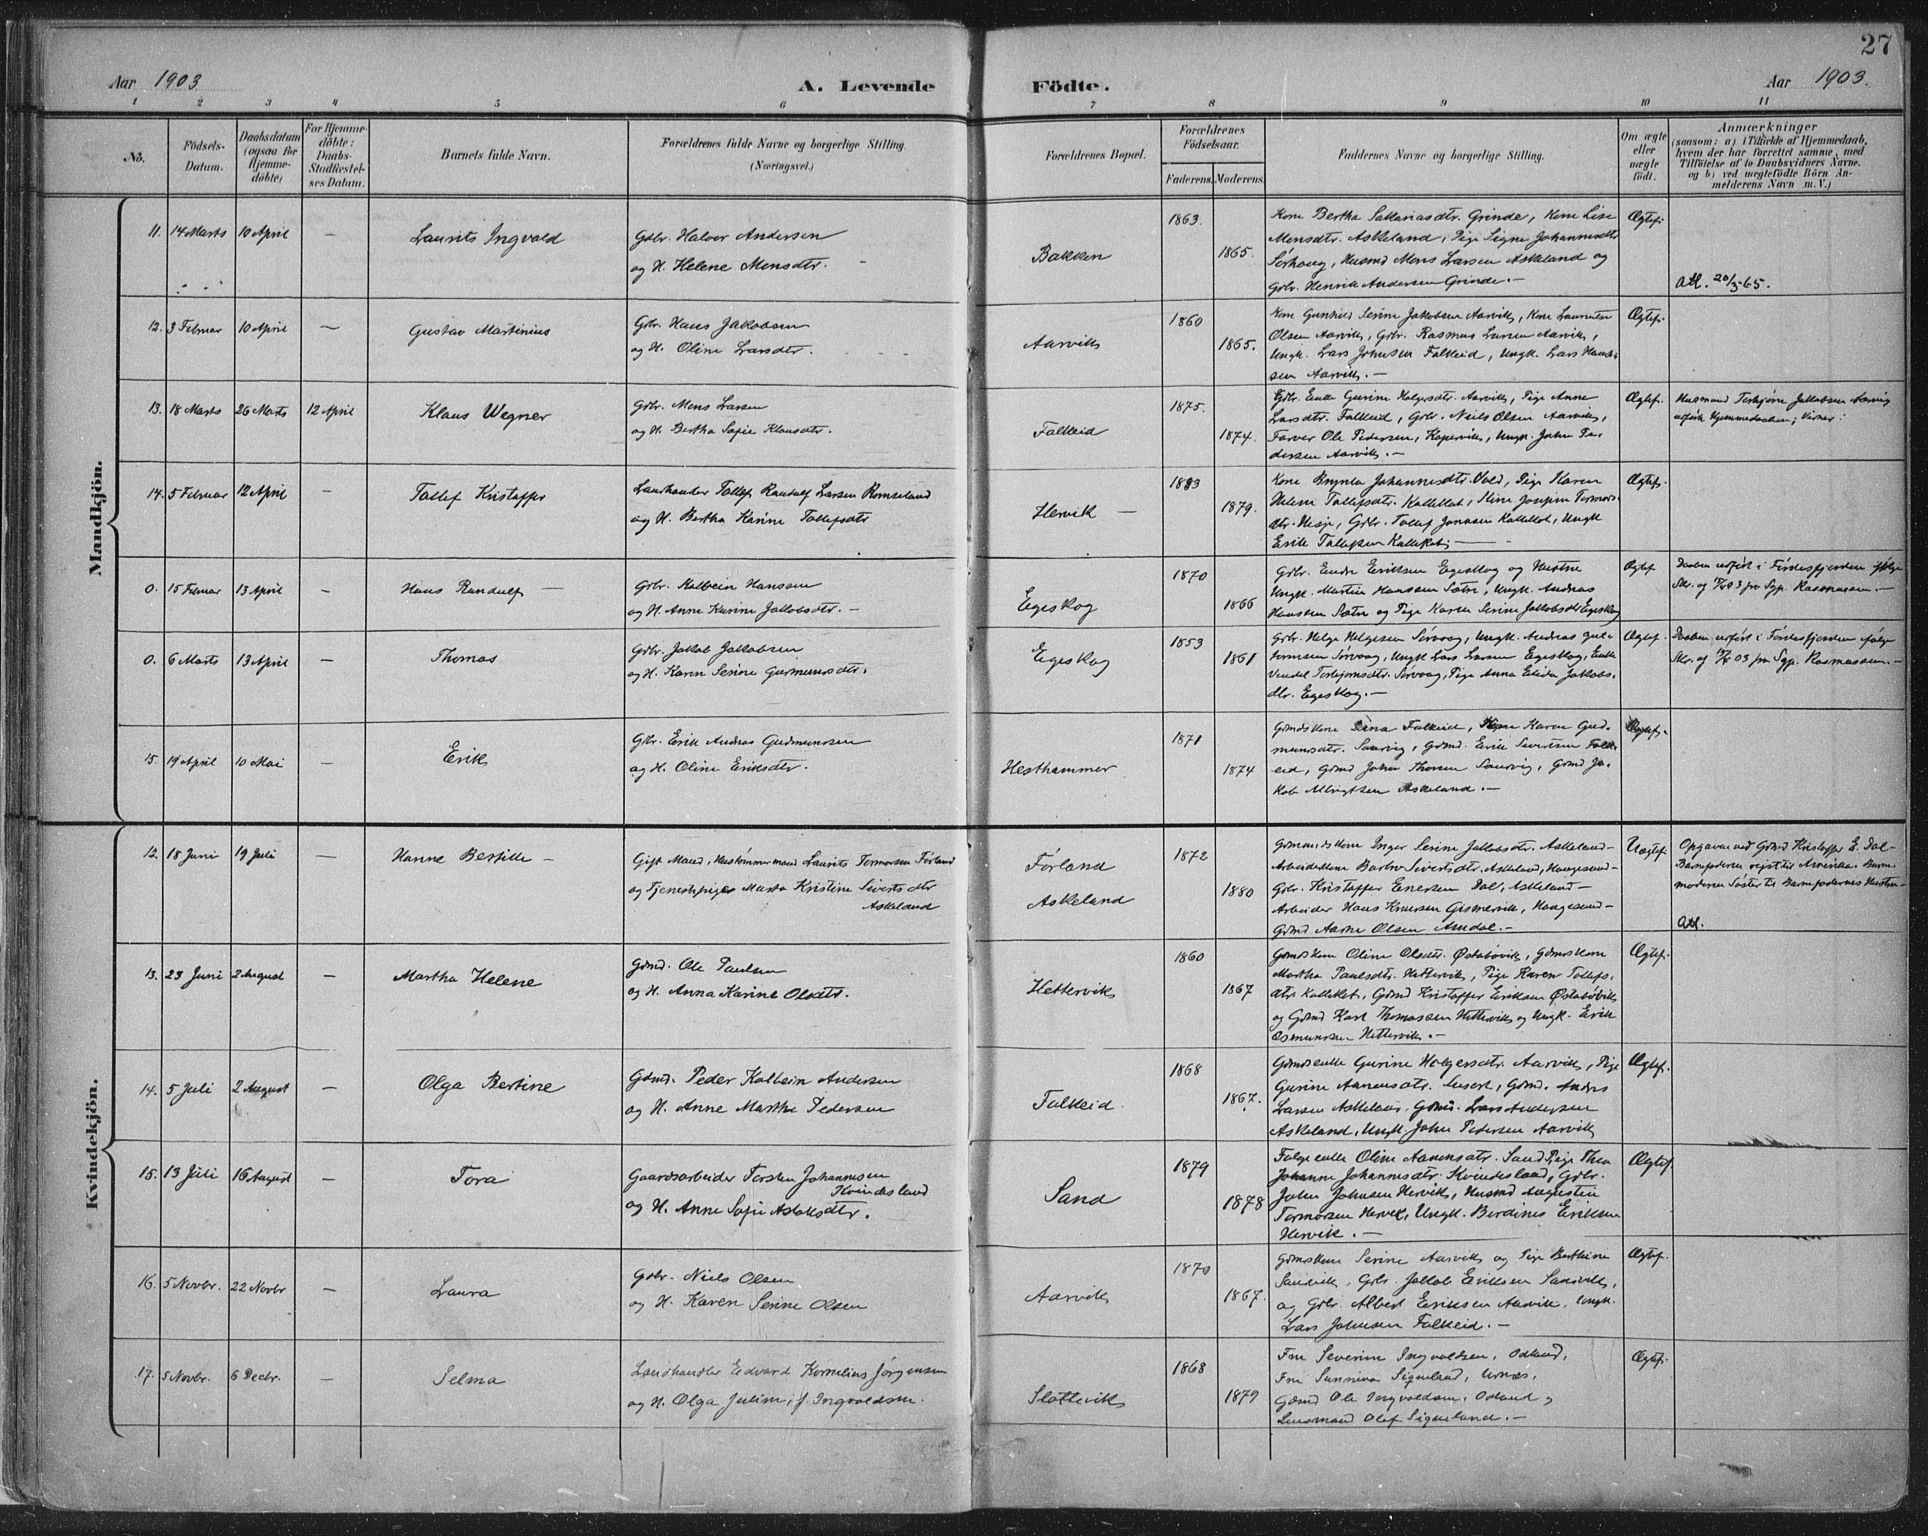 27
Aar 1903
A. Levende
Födte.
Aar 1903.
1 2 3 4 5 6 7 8 9 10 11
No.
Födsels-
Datum.
Daabsdatum
(ogsaa for
Hjemme-
döbte)
For Hjemme-
döbte:
Daabs-
Stadfæstel-
ses Datum.
Barnets fulde Navn.
Forældrenes fulde Navne og borgerlige Stilling.
(Næringsvei.)
Forældrenes Bopæl.
Forældrenes
Födselsaar.
Faderens. Moderens.
Faddernes Navne og borgerlige Stilling.
Om ægte
eller
uægte
födt.
Anmærkninger
(saasom: a) i Tilfælde af Hjemmedaab,
hvem der har forrettet samme, med
Tilföielse af to Daabsvidners Navne.
og b) ved uægtefödte Börn An-
melderens Navn m. V.)
Mandkjön.
11. 14 Marts 10 April — Laurits Ingvald
Gdbr. Halvor Andersen
og H. Helene Monsdtr.
Bakken
1863.
1865.
Kone Bertha Sakariasdtr. Grinde, Kone Lise
Monsdtr. Askeland, Pige Signe Johannesdtr
Husmd Mons Larsen Askeland og
Gbr. Henrik Andersen Grinde. —
Ægtef.
Att. 20/5-65.
12. 3 Februar 10 April — Gustav Martinius
Gbr. Hans Jakobsen
og H. Oline Larsdtr.
Aarvik
1860
1865.
Kone Gunhild Serine Jakobsen Aarvik, Kone
Olsen Aarvik, Gbr. Rasmus Larsen Aarvik,
Ungk. Lars Johnsen Falkeid, Ungk. Lars Han-
sen Aarvik. —
Ægtef.
13. 18 Marts 26 Marts 12 April Klaus Wegner
Gbr. Mons Larsen
og H. Bertha Sofie Klausdtr.
Falkeid
1875.
1874.
Gbr. Enke Gurine Holgersdtr. Aarvik, Pige Anne
Larsdtr. Falkeid, Gbr. Niels Olsen Aarvik,
Farver Ole Pedersen, Kopervik, Ungk. John Pe-
dersen Aarvik. —
Ægtef.
Husmand Jakobsen
Hjemmedaaben;
14. 5 Februar 12 April — Tollef Kristoffer
Landhandler Tollef Randulf Larsen
og H. Bertha Karine Tollefsdtr
Hervik —
1883
1879.
Kone Johannesdtr. Vold, Pige Karen
Helene Tollefsdtr. Kallekot,
Gbr. Tollef Jonassen Kallekot, Ungk
Erik Tollefsen Kallekot. —
Ægtef.
0. 15 Februar 13 April — Hans Randulf —
Gbr. Kolbein Hanssen
og H. Anne Karine Jakobsdtr. —
Egeskog
1870
1866
Gbr. Endre Eriksen Egeskog og Hustru
Ungk. Martin Hanssen Sætre, Ungk. Andreas
Hanssen Sætre og Pige Karen Serine Jakobsdtr Egeskog
Ægtef
Daaben udført i Førdesfjorden ifølge
Skr. af 03 fra Sgp. Rasmussen. —
0. 6 Marts 13 April — Thomas
Gbr. Jakob Jakobsen
og H. Karen Serine Gudmundsdtr.
Egeskog
1853
1861
Gbr. Helge Helgesen Sørvaag, Ungk. Andreas
Sørvaag, Ungk Lars Larsen Egeskog, Enke
Torbjørnsdtr. Sørvaag, Pige Anna Jakobs-
dtr. Egeskog. —
Ægtef
Daaben udført i Førdesfjorden ifølge
Skr. af 03 fra Sgp. Rasmussen. —
15. 19 April 10 Mai — Erik
Gbr. Erik Andreas Gudmundsen
og H. Oline Eriksdtr.
Hesthammer
1871
1874
Gdmdskone Falkeid, Kone Karen Gud-
mundsdtr. Gdmd. Erik Sivertsen Falk-
eid, Gdmd John Thorsen Gdmd Ja-
kob Askeland. —
Ægtef.
Kvindekjön.
12. 18 Juni 19 Juli — Hanne Bertille —
Gift Mand, Laurits Tormodsen Førland
og Tjenestepige Marta Kristine Sivertsdtr
Askeland
Førland
Askeland
1872
1880
Gdmandskone Inger Serine Jakobsdtr. Askeland —
Sivertsdtr. Askeland, Haugesund —
Gbr. Kristoffer Dal, Askeland —
Arbeider Hans Knutsen Gismervik, Haugesund —
Gdmd Aarne Olsen —
Uægtef.
Opgaven ved Gdmd Kristoffer E. Dal —
Barnefaderen reist til Amerika. Barne-
moderen Søster til Barnefaderens Hustru —
Att.
13. 23 Juni 2 August — Martha Helene
Gdmd. Ole Paulsen
og H. Anna Karine Olsdtr.
Hettervik
1860
1867
Gdmdskone Oline Olsdtr. Østabøvik, Gdmdskone
Martha Paulsdtr. Hettervik, Pige Karen Tollefs-
dtr. Kallekot, Gdmd Kristoffer Eriksen Østabøvik
og Gdmd Karl Thomassen Hettervik og Ungk. Erik
Osmundsen Hettervik. —
Ægtef.
14. 5 Juli 2 August — Olga Bertine
Gdmd. Peder Kolbein Andersen
og H. Anne Martha Pedersen
Falkeid.
1868
1867.
Gdmdsenke Gurine Holgersdtr. Aarvik, Pige
Gurine Gdmd. Anders
Larsen Askeland. Gdmd. Lars Andersen
Askeland, Ungk John Pedersen Aarvik
Ægtef.
15. 13 Juli 16 August — Tora
Gaardsarbeider Torsten Johannesen
Kvindesland
og H. Anne Sofie Aslaksdtr.
Sand
1879
1878
Oline Sand, Pige Thea
Johanne Johannesdtr. Kvindesland, Gbr.
John Johnsen Hervik, Husmd Augustin
Tormodsen Hervik, Ungk. Berdines Eriksen
Hervik. —
Ægtef.
16. 5 Novbr. 22 Novbr — Laura
Gdbr. Niels Olsen
og H. Karen Serine Olsen
Aarvik
1870
1867.
Gdmdskone Serine Aarvik og Pige Berthine
Sandvik, Gbr. Jakob Eriksen Sandvik,
og Gbr. Albert Eriksen Aarvik, Ungk.
Lars Johnsen Falkeid. —
Ægtef.
17. 5 Novbr. 6 Decbr. — Selma
Landhandler Edvard Kornelius Jørgensen
og H. Olga Juline, f. Ingvaldsen.
Slottevik
1868
1879
Fru Severine Ingvaldsen, Odland,
Fru Sunniva Sigveland,
Gdmd Ole Ingvaldsen, Odland,
Lensmand Olaf Sigveland. —
Ægtef.